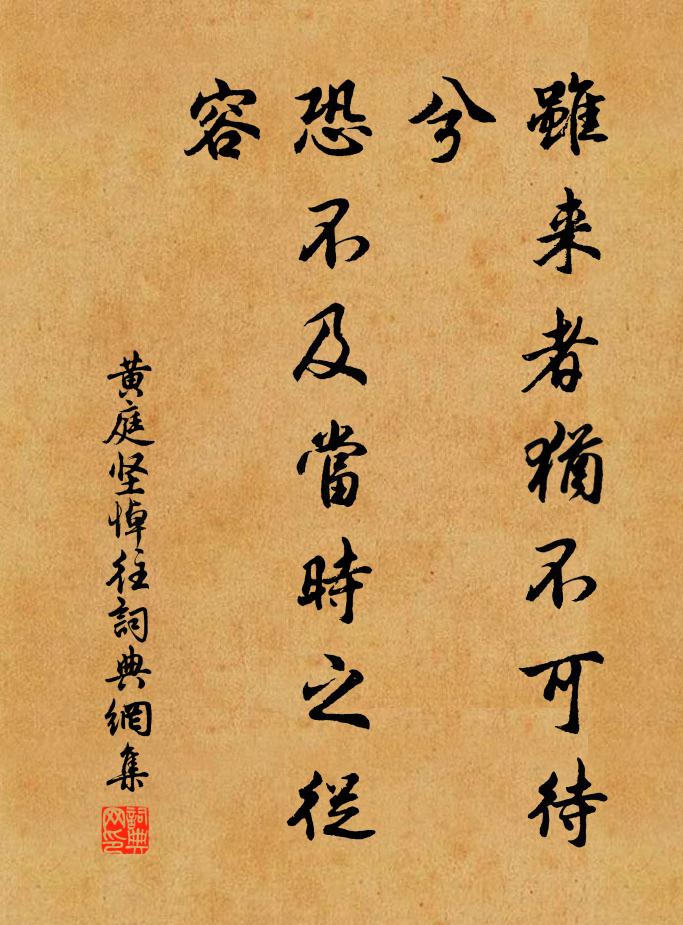 雖来者猶不可待
兮
恐不及當時之從
容
黄庭坚悼往詞典網集
詞典
网印